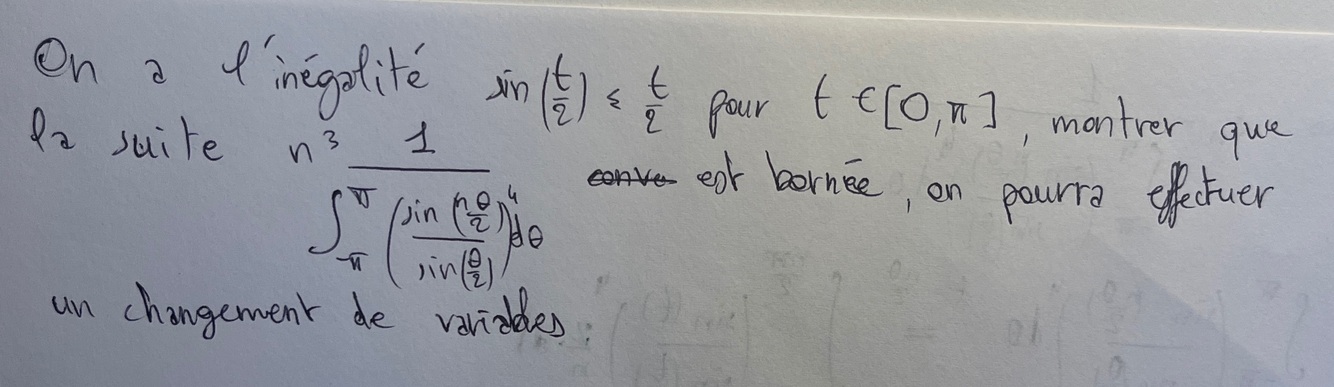 On a l'inégalité sin(t/2) ≤ t/2 pour t ∈ [0, π], montrer que
la suite n³ 1/(∫_{-π}^{π} (sin(nθ/2)/sin(θ/2))⁴ dθ) ~~conve~~ est bornée, on pourra effectuer
un changement de variables.